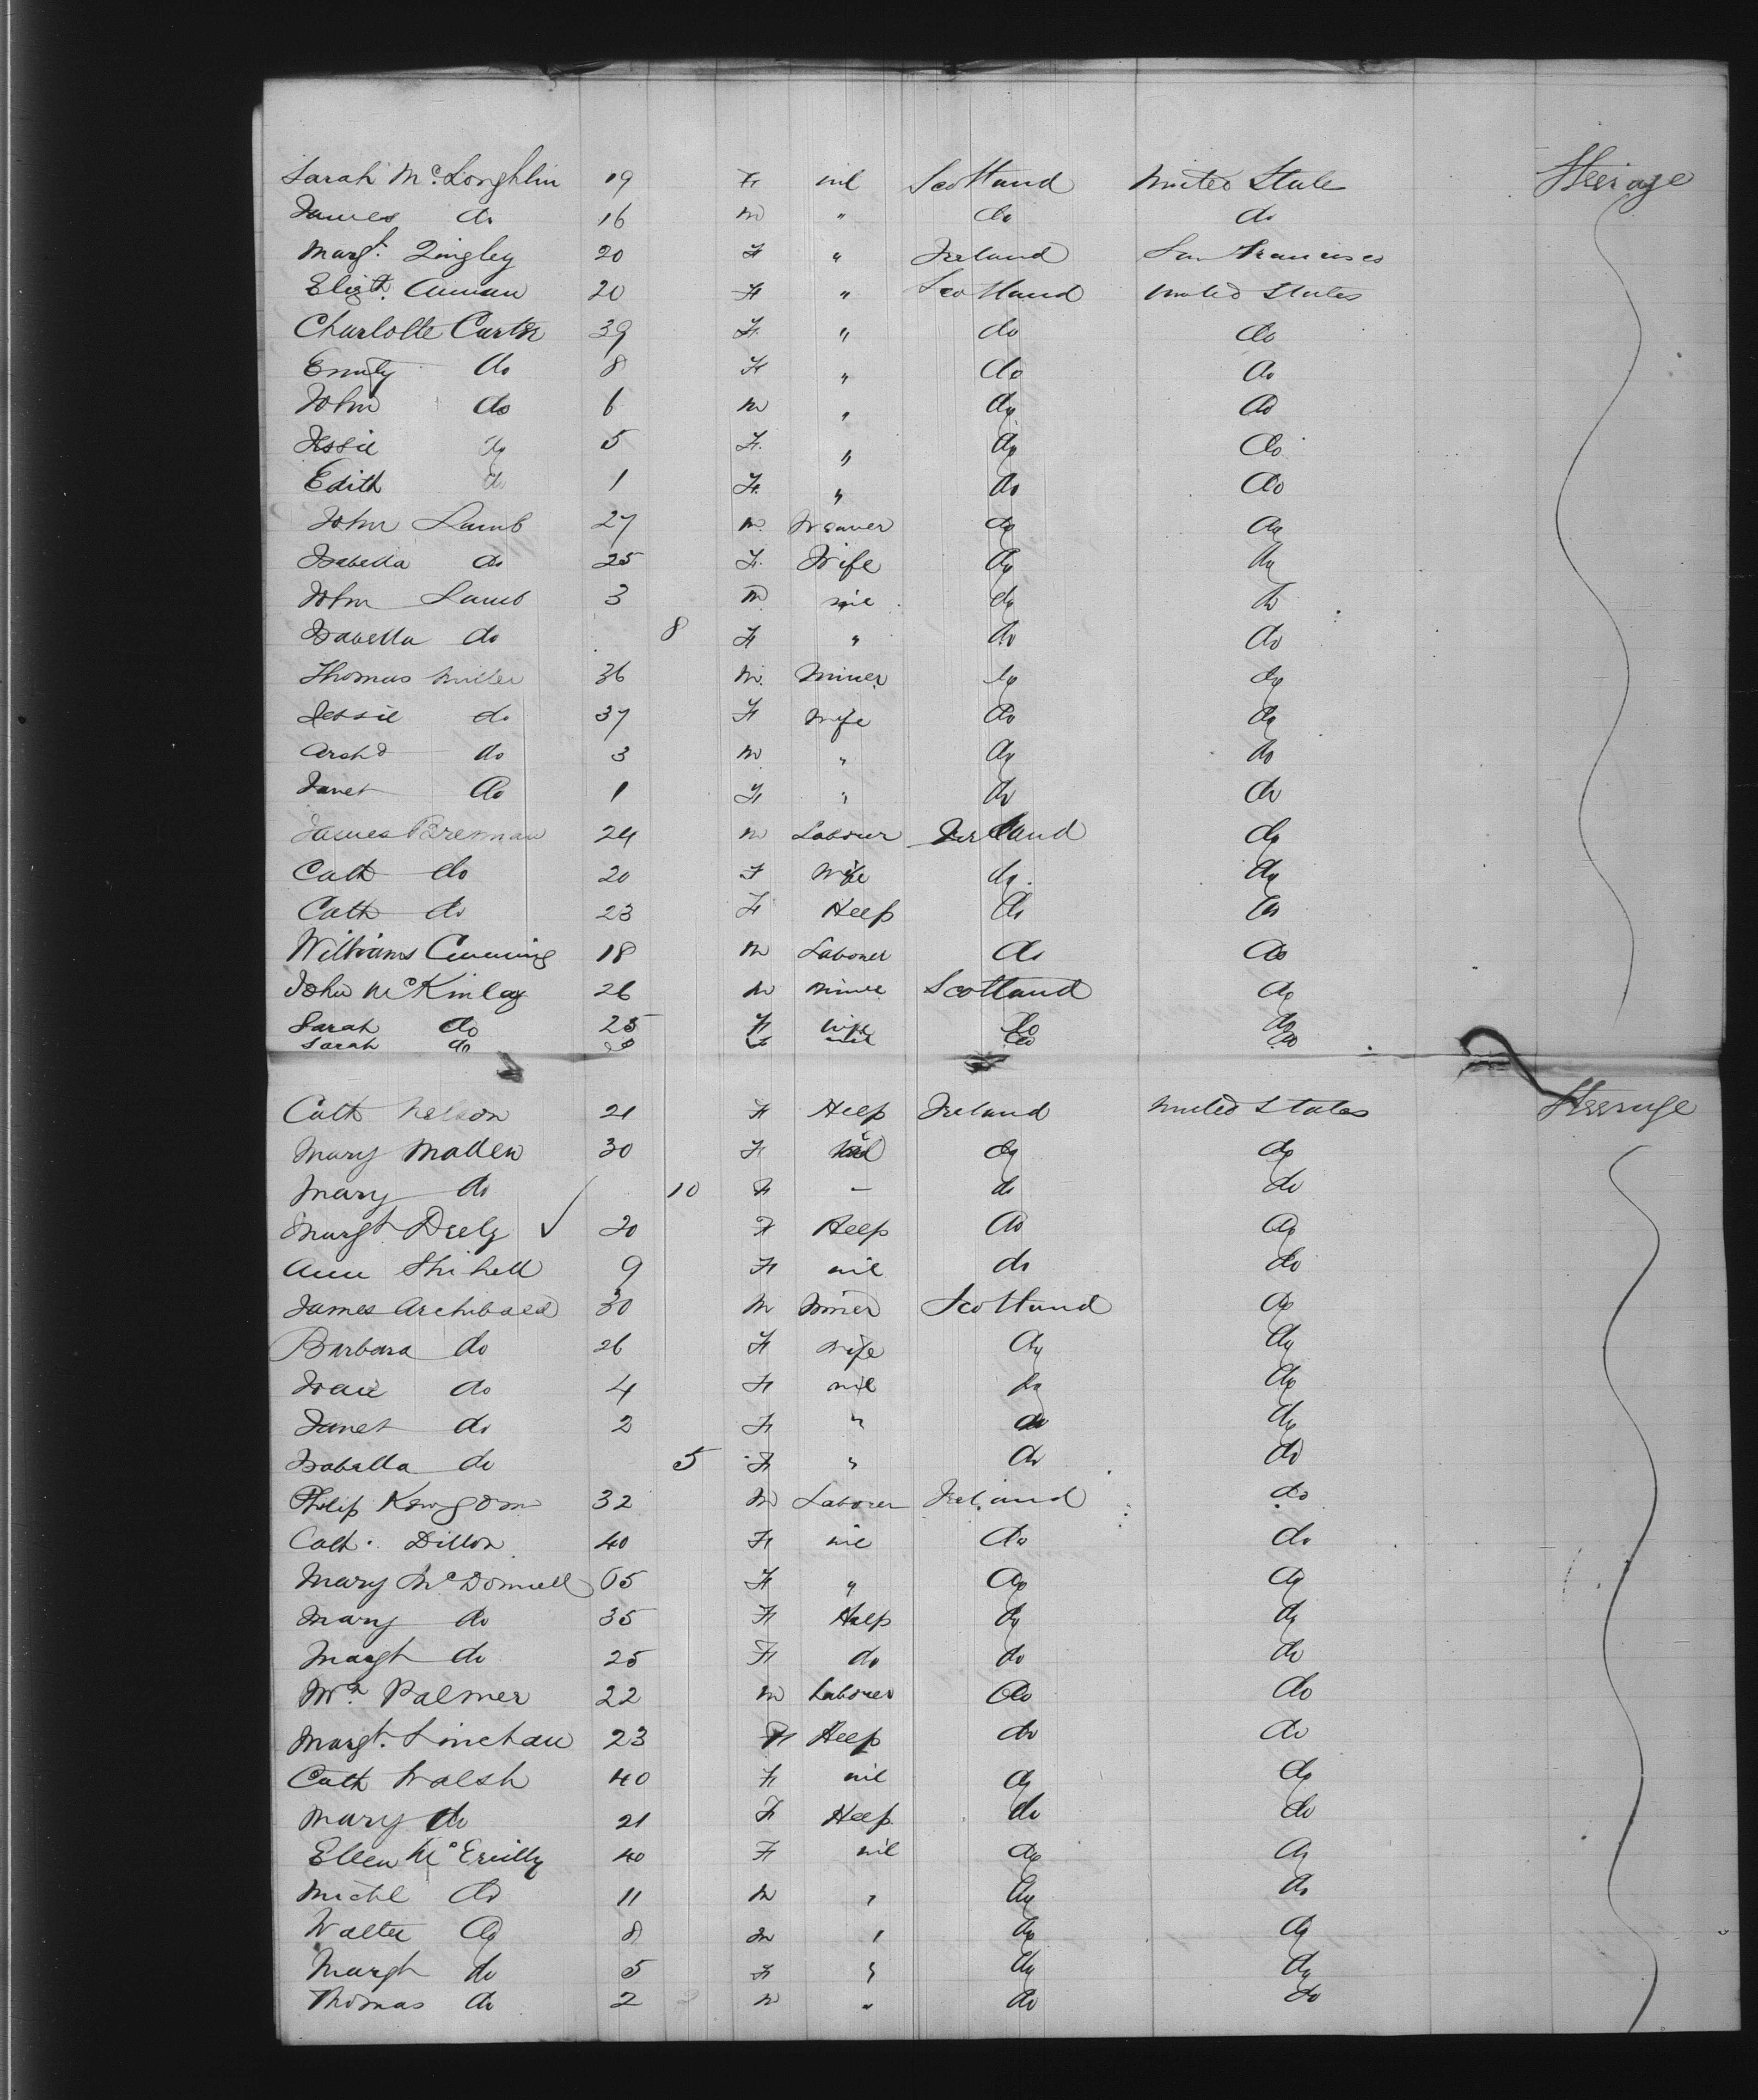 Sarah McLoughlin 19 F nil Scotland United State Steerage
James do 16 m " do do
Margt. Qingley 20 F " Ireland San Francisco
Elizth. Annan 20 F " Scotland United States
Charlotte Carter 39 F. " do do
Emily do 8 F " do do
John do 6 m " do do
Jessie do 5 F. " do do
Edith do 1 F. " do do
John Lamb 27 m. Weaver do do
Isabella do 25 F. Wife do do
John Lamb 3 m nil do do
Isabella do 8 F " do do
Thomas Miller 36 m. Miner do do
Jessie do 37 F Wife do do
Archd do 3 m " do do
Janet do 1 F " do do
James Brennan 24 m Labour Ireland do
Cath do 20 F Wife do do
Cath do 23 F Help do do
Williams Cumming 18 m Laborer do do
John McKinlay 26 m miner Scotland do
Sarah do 25 F Wife do do
Sarah do F nil do do
Cath Nelson 21 F Help Ireland United States Steerage
Mary Madden 30 F nil do do
Mary do 10 F — do do
Margt Deely 20 F Help do do
Ann Shihell 9 F nil do do
James Archibald 30 m Miner Scotland do
Barbara do 26 F Wife do do
do 4 F nil do do
Janet do 2 F " do do
Isabella do 5 F " do do
Philip 32 m Laborer Ireland do
Cath. Dillon 40 F nil do do
Mary McDonnell 65 F " do do
Mary do 35 F Help do do
Margt do 25 F do do do
Wm. Palmer 22 m Laborer do do
Margt. Linehan 23 F Help do do
Cath Walsh 40 F nil do do
Mary do 21 F Help do do
Ellen McEreilly 40 F nil do do
Michl do 11 m " do do
Walter do 8 m " do do
Margt do 5 F " do do
Thomas do 2 m " do do